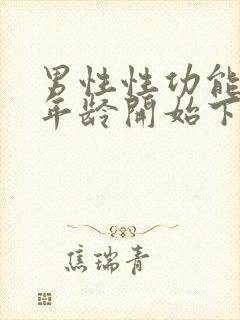 男性性功能
年龄開始下
焦瑞青